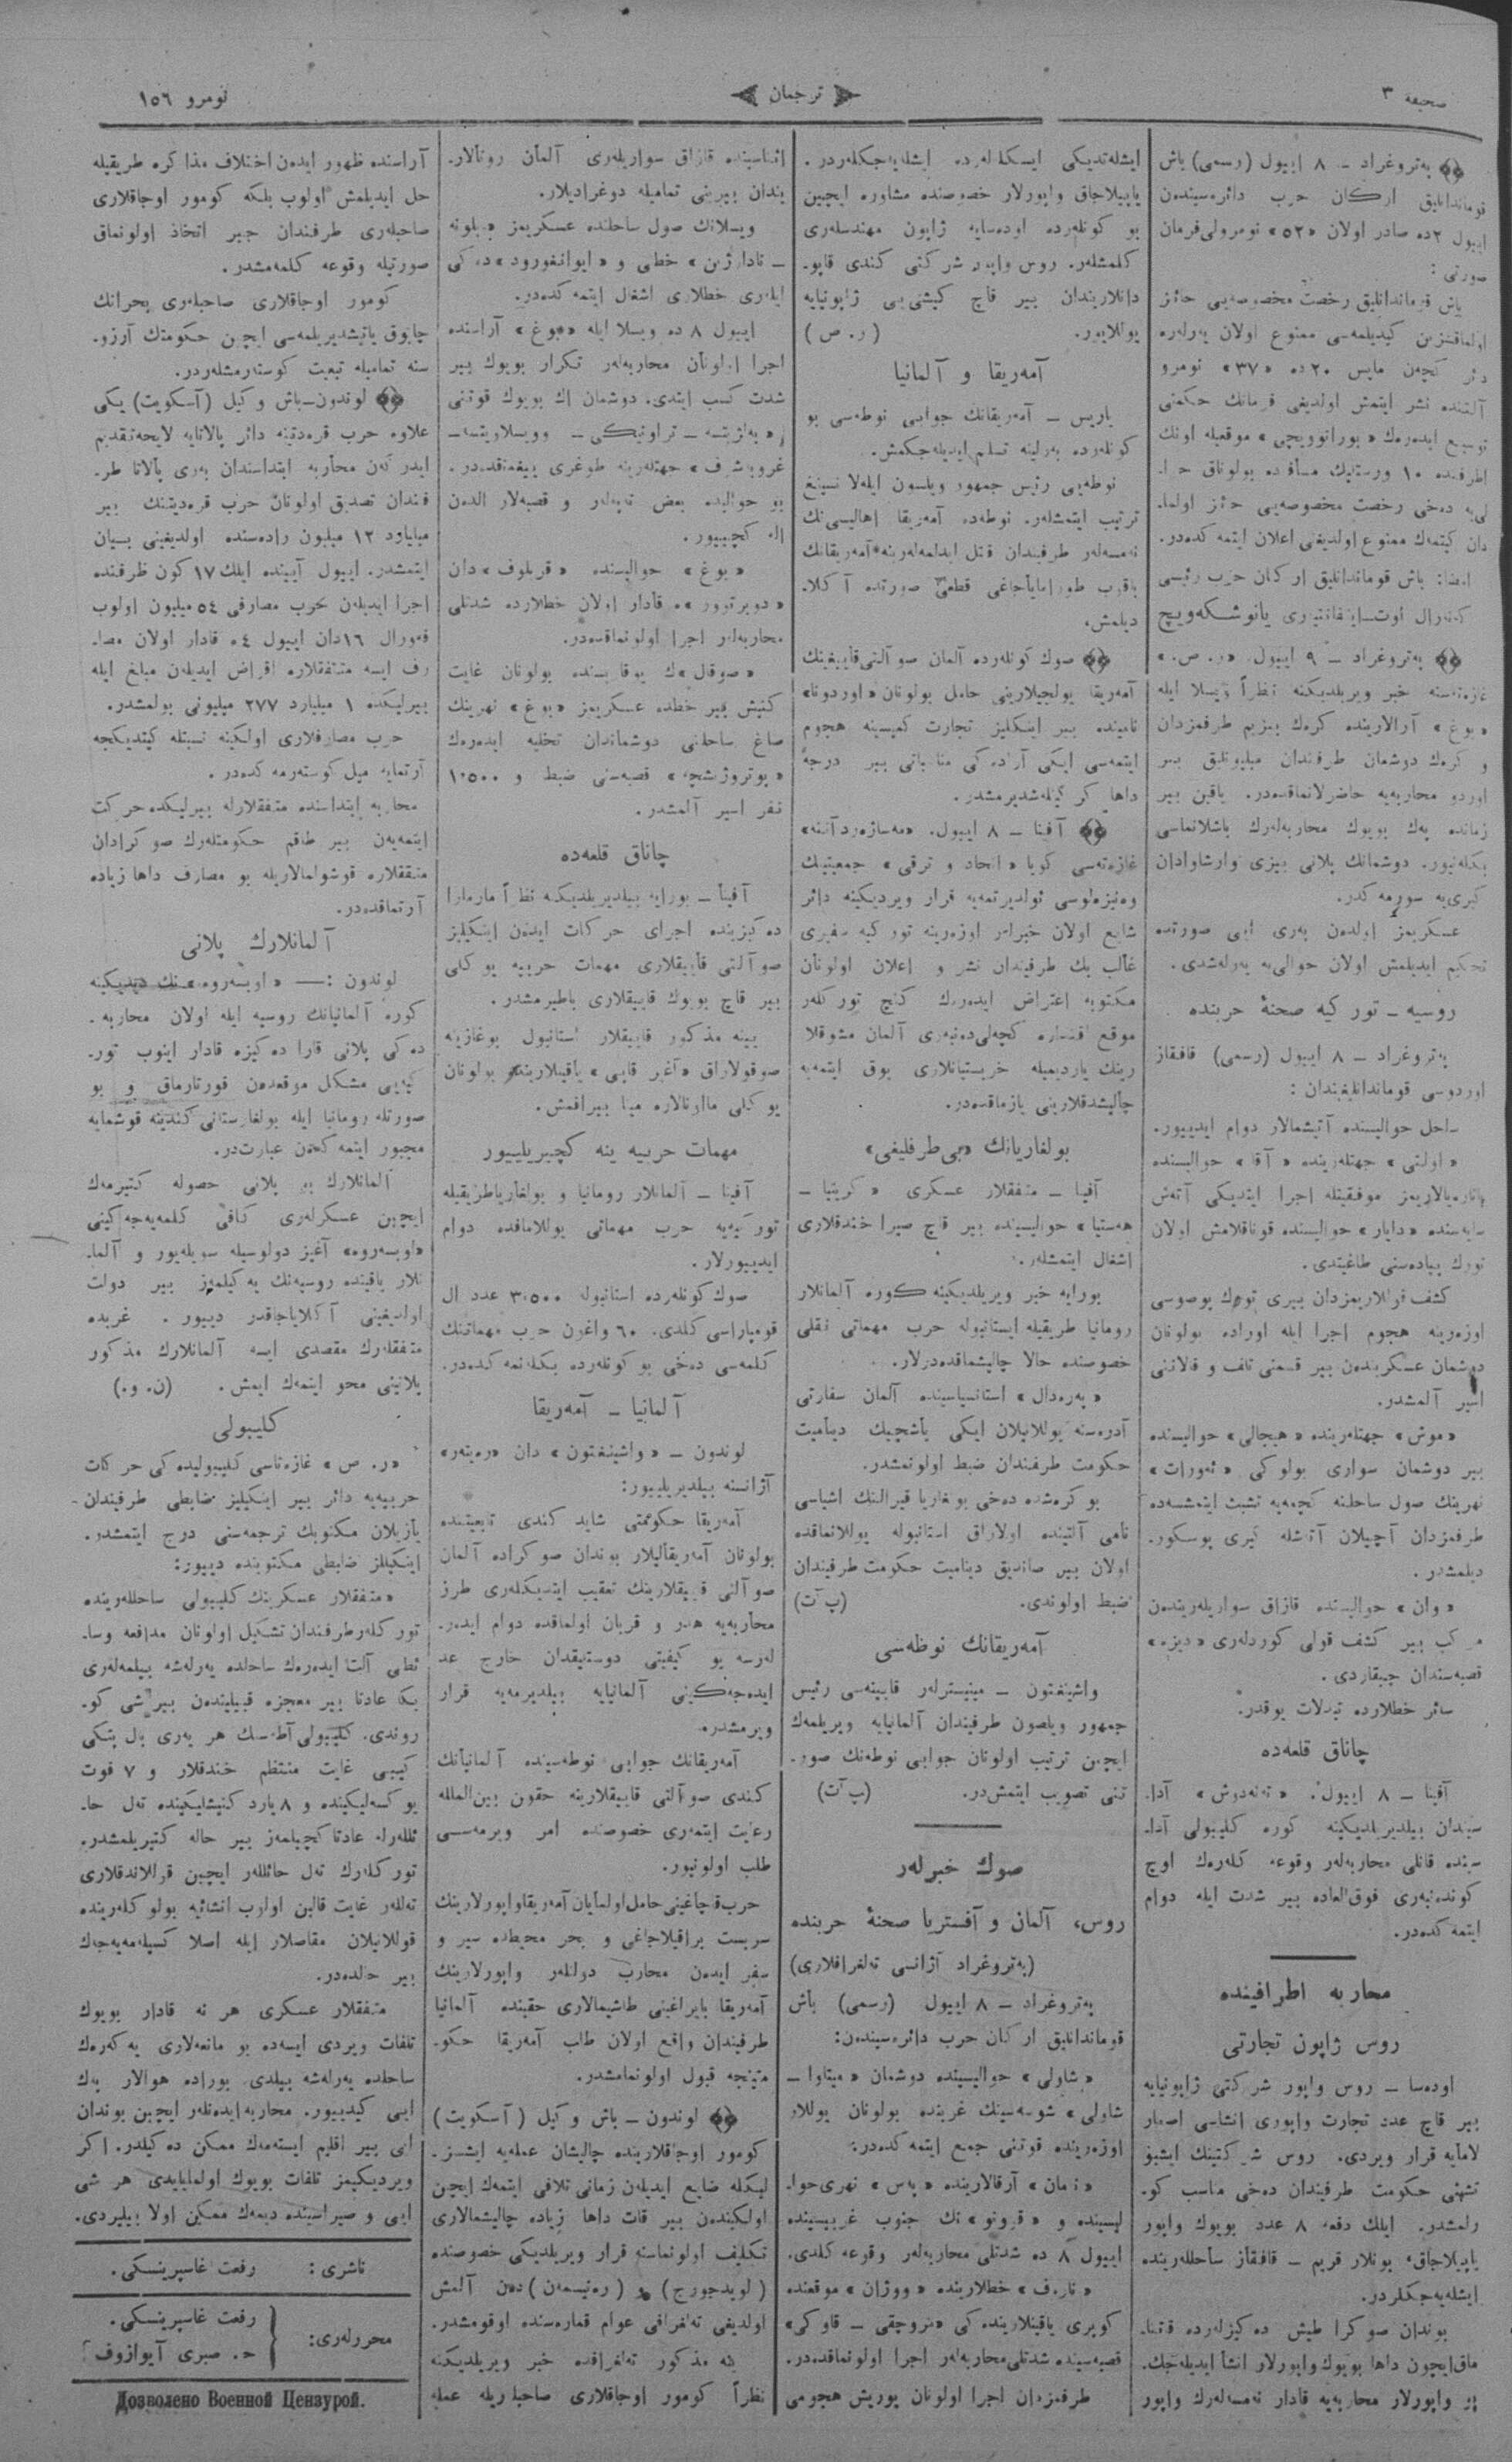 صحیفه ٣
ترجمان
نومرو ١٥٦
پەتروغراد – ٨ اییول (رسمی) باش
قوماندانلیق ارکان حرب دائرەسیندەن
اییول ٢ ده صادر اولان «٥٢» نومرولی فرمان
صورتی :
باش قوماندانلیق رخصت مخصوصەیی حائز
اولماقسزین کیدیلمەسی ممنوع اولان یەرلەرە
دائر کچەن مایس ٢٠ ده «٣٧» نومرو
آلتندە نشر ایتمش اولدیغی فرمانك حکمنی
توسیع ایدەرەك «بورانوویچی» موقعیلە اونك
اطرفندە ١٠ ورستلیك مسافەدە بولوناق
دان کیتمەك ممنوع اولدیغی اعلان ایتمەکدەدر.
امضا: باش قوماندانلیق ارکان حرب رئیسی
کنەرال اوت اینفانتیری یانوشکەویچ
پەتروغراد – ٩ اییول. «ر. ص.»
غازەتەسنە خبر ویریلدیکنە نظراً ویسلا ایلە
«بوغ» آرالاریندە کرەك بیزیم طرفمزدان
و کرەك دوشمان طرفندان میلیونلیق بیر
اوردو محاربەیە حاضرلانماقدەدر. یاقین بیر
زماندە پەك بویوك محاربەلەرك باشلانماسی
بکلەنیور. دوشمانك پلانی بیزی وارشاوادان
کیری‌یە سورمەکدر.
عسکریمز اولدەن بەری ایی صورتدە
تحکیم ایدیلمش اولان حوالی‌یە یەرلەشدی.
روسیە – تورکیە صحنۀ حربندە
پەتروغراد – ٨ اییول (رسمی) قافقاز
اوردوسی قوماندانلیغندان :
ساحل حوالیسندە آتیشمالار دوام ایدییور.
«اولتی» جهتلەریندە «آقا» حوالیسندە
باتارەیالاریمز موفقیتلە اجرا ایتدیکی آتەش
سایەسندە «دایار» حوالیسندە قوناقلامش اولان
تورك پیادەسنی طاغیتدی.
کشف قوللاریمزدان بیری تورك پوصوسی
اوزەرینە هجوم اجرا ایلە اورادە بولونان
دوشمان عسکریندەن بیر قسمنی تلف و قالاننی
اسیر آلمشدر.
«موش» جهتلەریندە «هیجالی» حوالیسندە
بیر دوشمان سواری بولوکی «ئەورات»
نهرینك صول ساحلنە کچمەیە تشبث ایتمشسەدە
طرفمزدان آچیلان آتشلە کیری پوسکور-
دیلمشدر.
«وان» حوالیسندە قازاق سواریلەریندەن
مرکب بیر کشف قولی کوردلەری «دیزە»
قصبەسندان چیقاردی.
سائر خطلاردە تبدلات یوقدر.
چاناق قلعەدە
آفینا – ٨ اییول. «تەنەدوش» آدا-
سیندان بیلدیریلدیکینە کورە کلیبولی آدا-
سیندە قانلی محاربەلەر وقوعە کلەرەك اوچ
کوندەنبەری فوق‌العادە بیر شدت ایلە دوام
ایتمەکدەدر.
محاربە اطرافیندە
روس ژاپون تجارتی
اودەسا – روس واپور شرکتی ژاپونیایە
بیر قاچ عدد تجارت واپوری انشاسی اصمار-
لامایە قرار ویردی. روس شرکتینك ایشبو
تشبثی حکومت طرفیندان دەخی مناسب کو-
رلمشدر. ایلك دفعە ٨ عدد بویوك واپور
یاپیلاجاق، بونلار قریم – قافقاز ساحللەریندە
ایشلەیەجکلردر.
بوندان صوکرا طیش دەکیزلەردە قتنا-
ماق‌ایچون داها بویوك واپورلار انشأ ایدیلەجك.
بو واپورلار محاربەیە قادار نەمسەلەرك واپور
ایشلەتدیکی ایسکلەلەردە ایشلەیەجکلەردر.
یاپیلاجاق واپورلار خصوصندە مشاورە ایچین
بو کونلەردە اودەسایە ژاپون مهندسلەری
کلمشلەر. روس واپور شرکتی کندی قاپو-
دانلاریندان بیر قاچ کیشی‌یی ژاپونیایە
یوللایور. (ر. ص)
آمەریقا و آلمانیا
پاریس – آمەریقانك جوابی نوطەسی بو
کونلەردە بەرلینە تسلیم ایدیلەجکمش.
نوطەیی رئیس جمهور ویلسون ایلەلانسینغ
ترتیب ایتمشلەر. نوطەدە آمەریقا اهالیسی‌نك
نەمسەلەر طرفیندان قتل ایدلمەلەرینە آمەریقانك
باقوب طورامایاجاغی قطعی صورتدە آکلا-
دیلمش.
صوك کونلەردە آلمان صوآلتی‌قاییغینك
آمەریقا یولجیلارینی حامل بولونان «اوردونا»
نامیندە بیر اینکلیز تجارت کمیسینە هجوم
ایتمەسی ایکی آرادەکی مناسباتی بیر درجە
داها کرکینلەشدیرمشدر.
آفینا – ٨ اییول. «مەساژەرد آتنە»
غازەتەسی کویا «اتحاد و ترقی» جمعیتینك
وەنیزەلوسی ئولدیرتمەیە قرار ویردیکینە دائر
شایع اولان خبرلەر اوزەرینە تورکیە سفیری
غالب بك طرفیندان نشر و اعلان اولونان
مکتوبە اعتراض ایدەرەك کنج تورکلەر
موقع اقتدارە کچەلی‌دەنبەری آلمان مشوقلا-
رینك یاردیمیلە خریستیانلاری یوق ایتمەیە
چالیشدقلارینی یازماقدەدر.
بولغاریانك «بی‌طرفلیغی»
آفینا – متفقلار عسکری «کریتیا –
هەستیا» حوالیسیندە بیر قاچ صیرا خندقلاری
اشغال ایتمشلەر.
بورایە خبر ویریلدیکینە کورە آلمانلار
رومانیا طریقیلە ایستانبولە حرب مهماتی نقلی
خصوصندە حالا چالیشماقدەدرلار.
«پەرەدال» استانسیاسیندە آلمان سفارتی
آدرەسنە یوللانیلان ایکی یاشچیك دینامیت
حکومت طرفندان ضبط اولونمشدر.
بو کرەشدە دەخی بولغاریا قیرالنك اشیاسی
نامی آلتیندە اولاراق استانبولە یوللانماقدە
اولان بیر صاندیق دینامیت حکومت طرفیندان
ضبط اولوندی. (پ ت)
آمەریقانك نوطەسی
واشینغتون – مینیسترلەر قابینەسی رئیس
جمهور ویلصون طرفیندان آلمانیایە ویریلمەك
ایچین ترتیب اولونان جوابی نوطەنك صور-
تنی تصویب ایتمش‌در. (پ ت)
صوك خبرلەر
روس، آلمان و آفستریا صحنۀ حربندە
(پەتروغراد آژانسی تەلغرافلاری)
پەتروغراد – ٨ اییول (رسمی) باش
قوماندانلیق ارکان حرب دائرەسیندەن:
«شاولی» حوالیسیندە دوشمان «میتاوا –
شاولی» شوسەسینك غربندە بولونان یوللار
اوزەریندە قوتنی جمع ایتمەکدەدر.
«نەمان» آرقالاریندە «یەس» نهری‌حوا-
لیسیندە و «قوونو» نك جنوب غربیسیندە
اییول ٨ ده شدتلی محاربەلەر وقوعە کلدی.
«نارەف» خطلاریندە «ووژان» موقعندە
کوپری یاقینلاریندەکی
قصبەسیندە شدتلی محاربەلەر اجرا اولونماقدەدر.
طرفمزدان اجرا اولونان یوریش هجومی
اثناسیندە قازاق سواریلەری آلمان روتالار-
یندان بیرینی تمامیلە دوغرادیلار.
ویسلانك صول ساحلندە عسکریمز
خطی و «ایوانغورود» دەکی
ایلەری خطلاری اشغال ایتمەکدەدر.
اییول ٨ ده ویسلا ایلە «بوغ» آراسندە
اجرا اولونان محاربەلەر تکرار بویوك بیر
شدت کسب ایتدی. دوشمان اك بویوك قوتنی
جهتلەرینە طوغری ییغمەقدەدر.
بو حوالیدە بعض تەپەلەر و قصبەلار الدن
الە کچییور.
«بوغ» حوالیسندە «قریلوف» دان
«دوبرتوور» ە قادار اولان خطلاردە شدتلی
محاربەلەر اجرا اولونماقدەدر.
«صوقال» ك یوقاریسندە بولونان غایت
کنیش بیر خطدە عسکریمز «بوغ» نهرینك
صاغ ساحلنی دوشماندان تخلیە ایدەرەك
قصبەسنی ضبط و ١٠٥٠٠
نفر اسیر آلمشدر.
چاناق قلعەدە
آفینا – بورایە بیلدیریلدیکنە نظراً مارمارا
دەکیزیندە اجرای حرکات ایدەن اینکیلیز
صوآلتی قاییقلاری مهمات حربیە یوکلی
بیر قاچ بویوك قاییقلاری باطیرمشدر.
یینە مذکور قاییقلار استانبول بوغازینە
صوقولاراق «آخیر قاپی» یاقینلاریندە بولونان
یوکلی ماوونالارە مینا بیراقمش.
مهمات حربیە ینە کچیریلییور
آفینا – آلمانلار رومانیا و بولغاریاطریقیلە
تورکیەیە حرب مهماتی یوللاماقدە دوام
ایدییورلار.
صوك کونلەردە استانبولە ٣٠٥٠٠ عدد ال
قومباراسی کلدی. ٦٠ واغون حرب مهماتینك
کلمەسی دەخی بو کونلەردە بکلەنمەکدەدر.
آلمانیا – آمەریقا
لوندون – «واشینغتون» دان «رەیتەر»
آژانسنە بیلدیریلییور:
آمەریقا حکومتی شاید کندی تابعیتندە
بولونان آمەریقالیلار بوندان صوکرادە آلمان
صوآلتی قاییقلارینك تعقیب ایتدیکلەری طرز
محاربەیە هدر و قربان اولماقدە دوام ایدەر-
لەرسە بو کیفیتی دوستلیقدان خارج عد
ایدەجەکینی آلمانیایە بیلدیرمەیە قرار
ویرمشدر.
آمەریقانك جوابی نوطەسیندە آلمانیانك
کندی صوآلتی قاییقلارینە حقوق بین‌الملله
رعایت ایتمەری خصوصندە امر ویرمەسی
طلب اولونیور.
حرب‌قاچاغینی‌حامل‌اولمایان آمەریقاواپورلارینك
سربست براقیلاجاغی و بحر محیطدە سیر و
سفر ایدەن محارب دوللەر واپورلارینك
آمەریقا بایراغینی طاشیمالاری حقیندە آلمانیا
طرفیندان واقع اولان طلب آمەریقا حکو-
متینجە قبول اولونمامشدر.
لوندون – باش وکیل (آسکویت)
کومور اوجاقلاریندە چالیشان عملەیە ایشسز-
لیکلە ضایع ایدیلەن زمانی تلافی ایتمەك ایچین
اولکیندەن بیر قات داها زیادە چالیشمالاری
تکلیف اولونماسنە قرار ویریلدیکی خصوصندە
(لویدجورج) و (رەنیسمەن) دەن آلمش
اولدیغی تەلغرافی عوام قمارەسندە اوقومشدر.
ینە مذکور تەلغرافدە خبر ویریلدیکنە
نظراً کومور اوجاقلاری صاحبلریلە عملە
آراسندە ظهور ایدەن اختلاف مذاکرە طریقیلە
حل ایدیلمش اولوب بلکە کومور اوجاقلاری
صاحبلەری طرفندان جبر اتخاذ اولونماق
صورتیلە وقوعە کلمەمشدر.
کومور اوجاقلاری صاحبلەری بحرانك
چابوق یاتیشدیریلمەسی ایچین حکومتك آرزو-
سنە تمامیلە تبعیت کوستەرمشلەردر.
لوندون–باش وکیل (آسکویت) یکی
علاوە حرب قرەدیتنە دائر پالاتایە لایحەتقدیم
ایدرکەن محاربە ابتداسندان بەری پالاتا طر-
فندان تصدیق اولونان حرب قرەدیتنك بیر
میلیارد ١٢ میلیون رادەسندە اولدیغینی بیان
ایتمشدر. اییول آییندە ایلك ١٧ کون ظرفندە
اجرا ایدیلەن حرب مصارفی ٥٤ میلیون اولوب
فەورال ١٦دان اییول ٤ە قادار اولان مصا-
رف ایسە متفقلارە اقراض ایدیلەن مبلغ ایلە
بیرلیکدە ١ میلیارد ٢٧٧ میلیونی بولمشدر.
حرب مصارفلاری اولکینە نسبتلە کیتدیکجە
آرتمایە میل کوستەرمەکدەدر.
محاربە ابتداسندە متفقلارلە بیرلیکدە حرکت
ایتمەیەن بیر طاقم حکومتلەرك صوکرادان
متفقلارە قوشولمالاریلە بو مصارف داها زیادە
آرتماقدەدر.
آلمانلارك پلانی
لوندون :— «اوبسەروەر» نك دیدیکینە
کورە آلمانیانك روسیە ایلە اولان محاربە-
دەکی پلانی قارا دەکیزە قادار اینوب تور-
کیەیی مشکل موقعدەن قورتارماق و بو
صورتلە رومانیا ایلە بولغارستانی کندینە قوشمایە
مجبور ایتمەکدەن عبارت‌در.
آلمانلارك بو پلانی حصولە کتیرمەك
ایچین عسکرلەری کافی کلمەیەجەکینی
«اوبسەروەر» آغیز دولوسیلە سویلەیور و آلما-
نلار یاقیندە روسیەنك یەکیلمەز بیر دولت
اولدیغینی آکلایاجاقدر دییور. غربدە
متفقلەرك مقصدی ایسە آلمانلارك مذکور
پلانینی محو ایتمەك ایمش. (ن. و.)
کلیبولی
«ر. ص» غازەتاسی کلیبولیدەکی حرکات
حربیەیە دائر بیر اینکیلیز ضابطی طرفیندان
یازیلان مکتوبك ترجمەسنی درج ایتمشدر.
اینکیلیز ضابطی مکتوبندە دییور:
«متفقلار عسکرینك کلیبولی ساحللەریندە
تورکلەرطرفیندان تشکیل اولونان مدافعە وسا-
ئطی آلت ایدەرەك ساحلدە یەرلەشە بیلمەلەری
بکا عادتا بیر معجزە قبیلیندەن بیر شی کو-
روندی. کلیبولی آطەسنك هر یەری بال پتکی
کیبی غایت منتظم خندقلار و ٧ فوت
یوکسەلیکیندە و ٨ یارد کنیشلیکیندە تەل حا-
ئللەرلە عادتا کچیلمەز بیر حالە کتیریلمشدر.
تورکلەرك تەل حائللەر ایچین قوللاندقلاری
تەللەر غایت قالین اولوب انشائیە بولوکلەریندە
قوللانیلان مقاصلار ایلە اصلا کسیلەمەیەجەك
بیر حالدەدر.
متفقلار عسکری هر نە قادار بویوك
تلفات ویردی ایسەدە بو مانعەلاری یەکەرەك
ساحلدە یەرلەشە بیلدی. بورادە هوالار پەك
ایی کیدییور. محاربە ایدەنلەر ایچین بوندان
ایی بیر اقلیم ایستەمەك ممکن دەکیلدر. اکر
ویردیکیمز تلفات بویوك اولمایایدی هر شی
ایی و صیراسیندە دیمەك ممکین اولا بیلیردی.
ناشری : رفعت غاسپرینسکی.
محررلەری:
رفعت غاسپرینسکی.
ح. صبری آیوازوف
Дозволено Военной Цензурой.